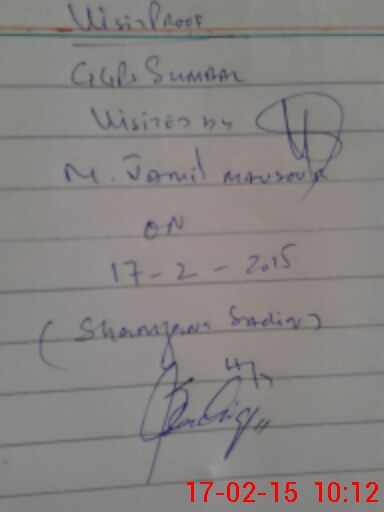 Visit Proof
GGPS SUMBAL
Visited by
M. Jamil MANSOOR
ON
17-2-2015
(Shamzana Sadiq)
17-02-15 10:12